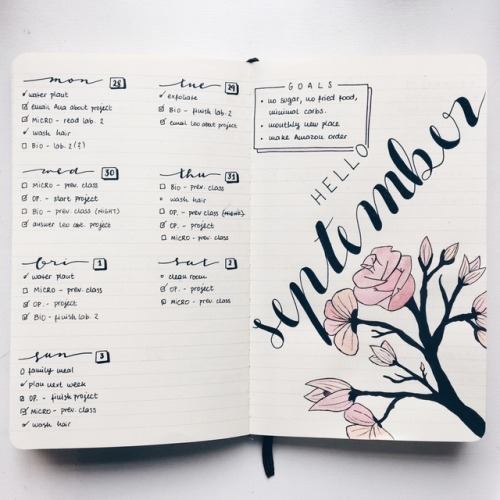 mon 28
water plant
email Ana about project
MICRO - read lab. 2
wash hair
BIO - lab. 2 (?)
tue 29
exfoliate
BIO - finish lab. 2
email Leo about project
wed 30
MICRO - prev. class
OP. - start project
BIO - prev. class (NIGHT)
answer Leo abt. project
thu 31
BIO - prev. class
wash hair
OP. - prev class (NIGHT)
OP. - project
MICRO - prev. class
fri 1
water plant
MICRO - prev. class
OP. - project
BIO - finish lab. 2
sat 2
clean room
OP. - project
MICRO - prev. class
sun 3
family meal
plan next week
OP. - finish project
MICRO - prev. class
wash hair
GOALS
• no sugar, no fried food,
minimal carbs.
• monthly new place
• make Amazon order
HELLO
september